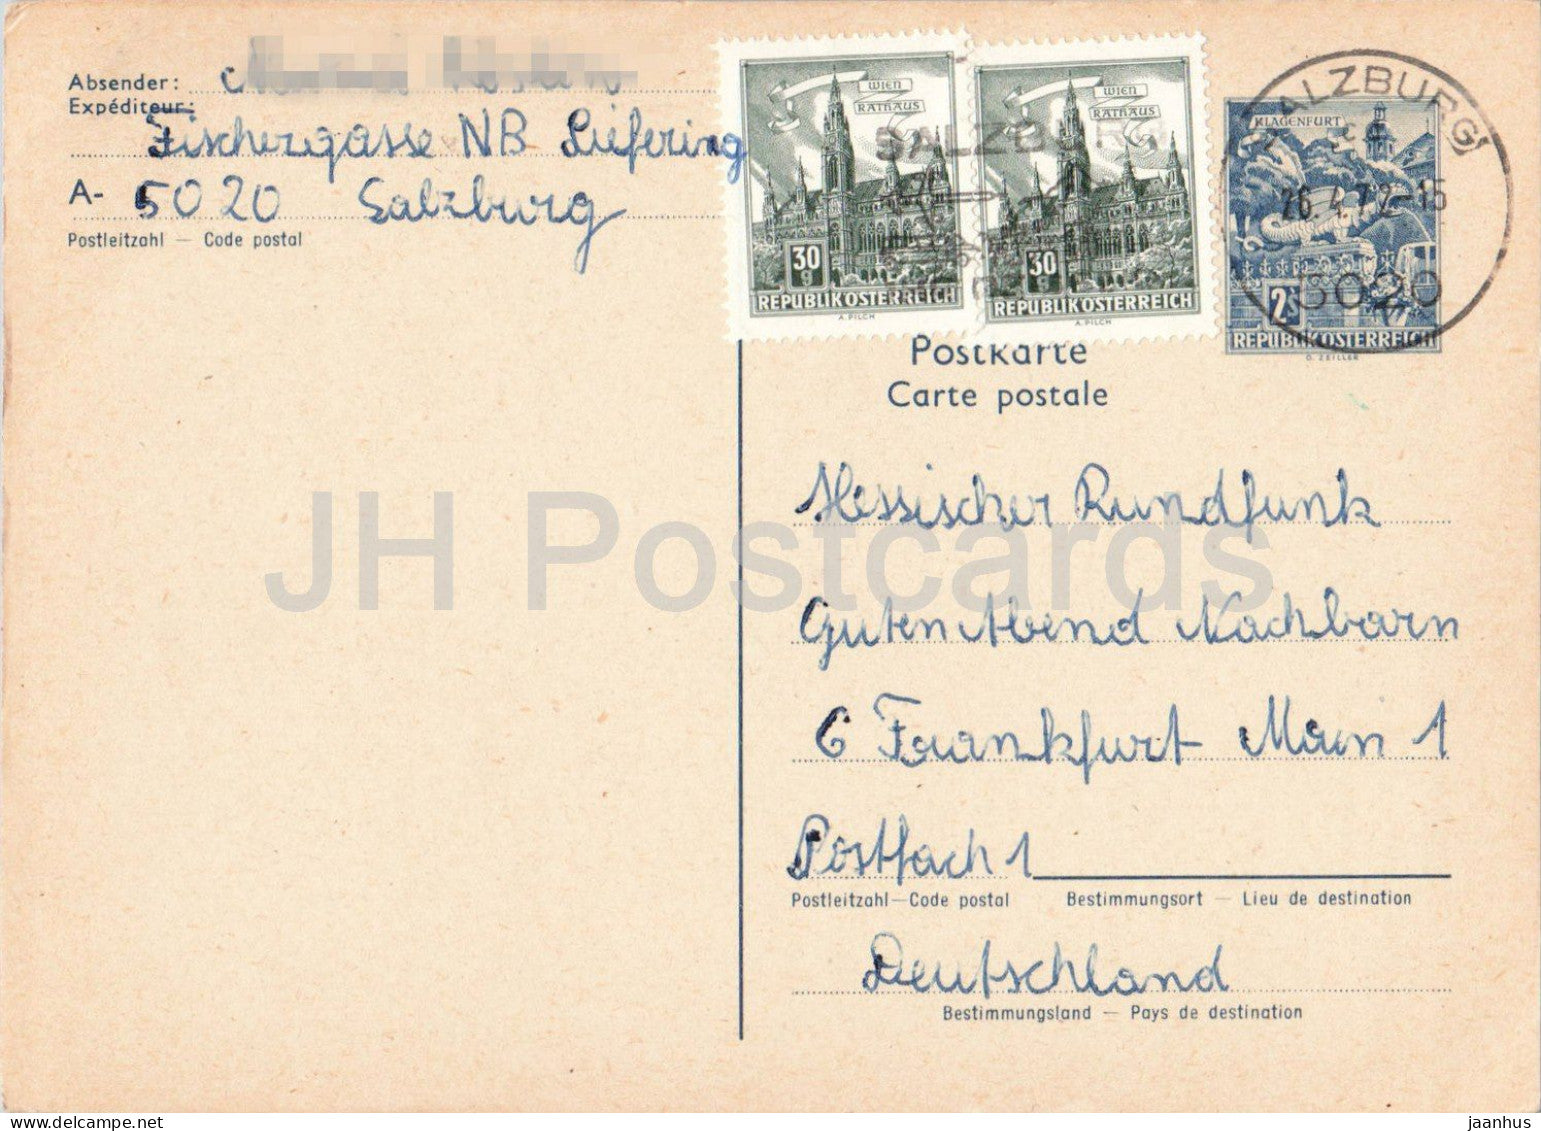 Absender:
Expéditeur:
Fischergasse NB Liefering
A- 5020 Salzburg
Postleitzahl — Code postal
WIEN
RATHAUS
30
g
REPUBLIK ÖSTERREICH
A. PILCH
WIEN
RATHAUS
30
g
REPUBLIK ÖSTERREICH
A. PILCH
SALZBURG
KLAGENFURT
2S
REPUBLIK ÖSTERREICH
G. ZEILLER
SALZBURG
26.4.72-15
5020
Postkarte
Carte postale
Hessischer Rundfunk
Guten Abend Nachbarn
6 Frankfurt Main 1
Postfach 1
Postleitzahl — Code postal Bestimmungsort — Lieu de destination
Deutschland
Bestimmungsland — Pays de destination
JH Postcards
jaanhus @ delcampe.net